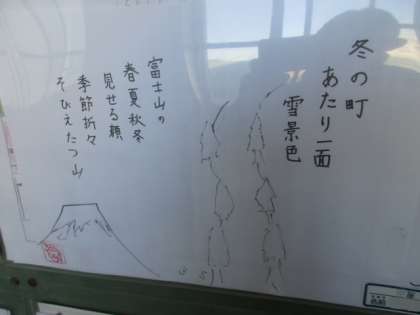 冬の町
あたり一面
雪景色
富士山の
春夏秋冬
見せる顔
季節折々
そびえたつ山